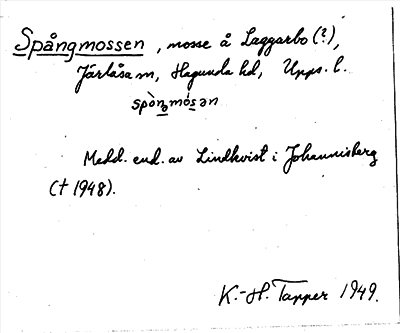 Spångmossen, mosse å Laggarbo (?),
Järlåsa sn, Hagunda hd, Upps. l.
spòŋmósən
Medd. end. av Lindkvist i Johannisberg
(† 1948).
K.-H. Tapper 1949.